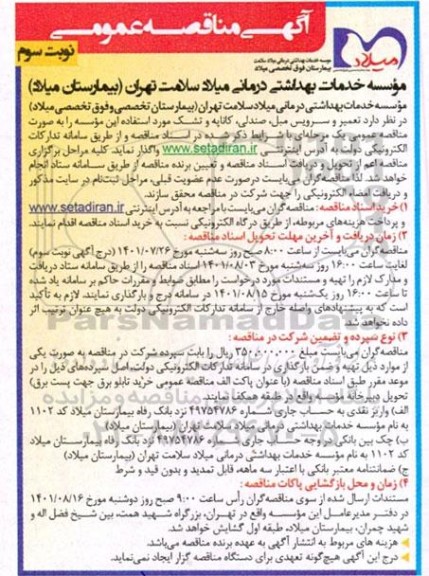 آگهی مناقصه عمومی
نوبت سوم
میلاد
موسسه خدمات بهداشتی درمانی میلاد سلامت
بیمارستان فوق تخصصی میلاد
مؤسسه خدمات بهداشتی درمانی میلاد سلامت تهران (بیمارستان میلاد)
مؤسسه خدمات بهداشتی درمانی میلاد سلامت تهران (بیمارستان تخصصی و فوق تخصصی میلاد)
در نظر دارد تعمیر و سرویس مبل، صندلی، کاناپه و تشک مورد استفاده این مؤسسه را به صورت
مناقصه عمومی یک مرحله‌ای با شرایط ذکر شده در اسناد مناقصه و از طریق سامانه تدارکات
الکترونیکی دولت به آدرس اینترنتی www.setadiran.ir واگذار نماید. کلیه مراحل برگزاری
مناقصه اعم از تحویل و دریافت اسناد مناقصه و تعیین برنده مناقصه از طریق سامانه ستاد انجام
خواهد شد. لذا مناقصه‌گران می‌بایست درصورت عدم عضویت قبلی، مراحل ثبت‌نام در سایت مذکور
و دریافت امضاء الکترونیکی را جهت شرکت در مناقصه محقق سازند.
۱) خرید اسناد مناقصه: مناقصه‌گران می‌بایست با مراجعه به آدرس اینترنتی www.setadiran.ir
و پرداخت هزینه‌های مربوطه، از طریق درگاه الکترونیکی نسبت به خرید اسناد مناقصه اقدام نمایند.
۲) زمان دریافت و آخرین مهلت تحویل اسناد مناقصه:
مناقصه‌گران می‌بایست از ساعت ۸:۰۰ صبح روز سه‌شنبه مورخ ۱۴۰۱/۰۷/۲۶ (درج آگهی نوبت سوم)
لغایت ساعت ۱۶:۰۰ روز سه‌شنبه مورخ ۱۴۰۱/۰۸/۰۳ اسناد مناقصه را از طریق سامانه ستاد دریافت
و مدارک لازم را تهیه و مستندات مورد درخواست را مطابق ضوابط و مقررات حاکم بر سامانه یاد شده
تا ساعت ۱۶:۰۰ روز یکشنبه مورخ ۱۴۰۱/۰۸/۱۵ در سامانه درج و بارگذاری نمایند. لازم به تأکید
است که به پیشنهادهای واصله خارج از سامانه تدارکات الکترونیکی دولت به هیچ عنوان ترتیب اثر
داده نخواهد شد.
۳) نوع سپرده و تضمین شرکت در مناقصه:
مناقصه‌گران می‌بایست مبلغ ۳۵۰،۰۰۰،۰۰۰ ریال را بابت سپرده شرکت در مناقصه به صورت یکی
از موارد ذیل تهیه و ضمن بارگذاری در سامانه تدارکات الکترونیکی دولت، اصل سپرده‌های ذیل را در
موعد مقرر طبق اسناد مناقصه (با عنوان پاکت الف مناقصه عمومی خرید تابلو برق جهت پست برق)
تحویل دبیرخانه این مؤسسه واقع در طبقه همکف نمایند.
الف) واریز نقدی به حساب جاری شماره ۴۹۷۵۴۷۸۶ نزد بانک رفاه بیمارستان میلاد کد ۱۱۰۲
به نام مؤسسه خدمات بهداشتی درمانی میلاد سلامت تهران (بیمارستان میلاد)
ب) چک بین بانکی در وجه حساب جاری شماره ۴۹۷۵۴۷۸۶ نزد بانک رفاه بیمارستان میلاد
کد ۱۱۰۲ به نام مؤسسه خدمات بهداشتی درمانی میلاد سلامت تهران (بیمارستان میلاد)
ج) ضمانتنامه معتبر بانکی با اعتبار سه ماهه، قابل تمدید و بدون قید و شرط
۴) زمان و محل بازگشایی پاکات مناقصه:
مستندات ارسال شده از سوی مناقصه‌گران رأس ساعت ۹:۰۰ صبح روز دوشنبه مورخ ۱۴۰۱/۰۸/۱۶
در دفتر مدیرعامل این مؤسسه واقع در تهران، بزرگراه شهید همت، بین شیخ فضل اله و
شهید چمران، بیمارستان میلاد، طبقه اول گشایش خواهد شد.
هزینه های مربوط به انتشار آگهی به عهده برنده مناقصه می‌باشد.
درج این آگهی هیچ‌گونه تعهدی برای دستگاه مناقصه گزار ایجاد نمی‌نماید.